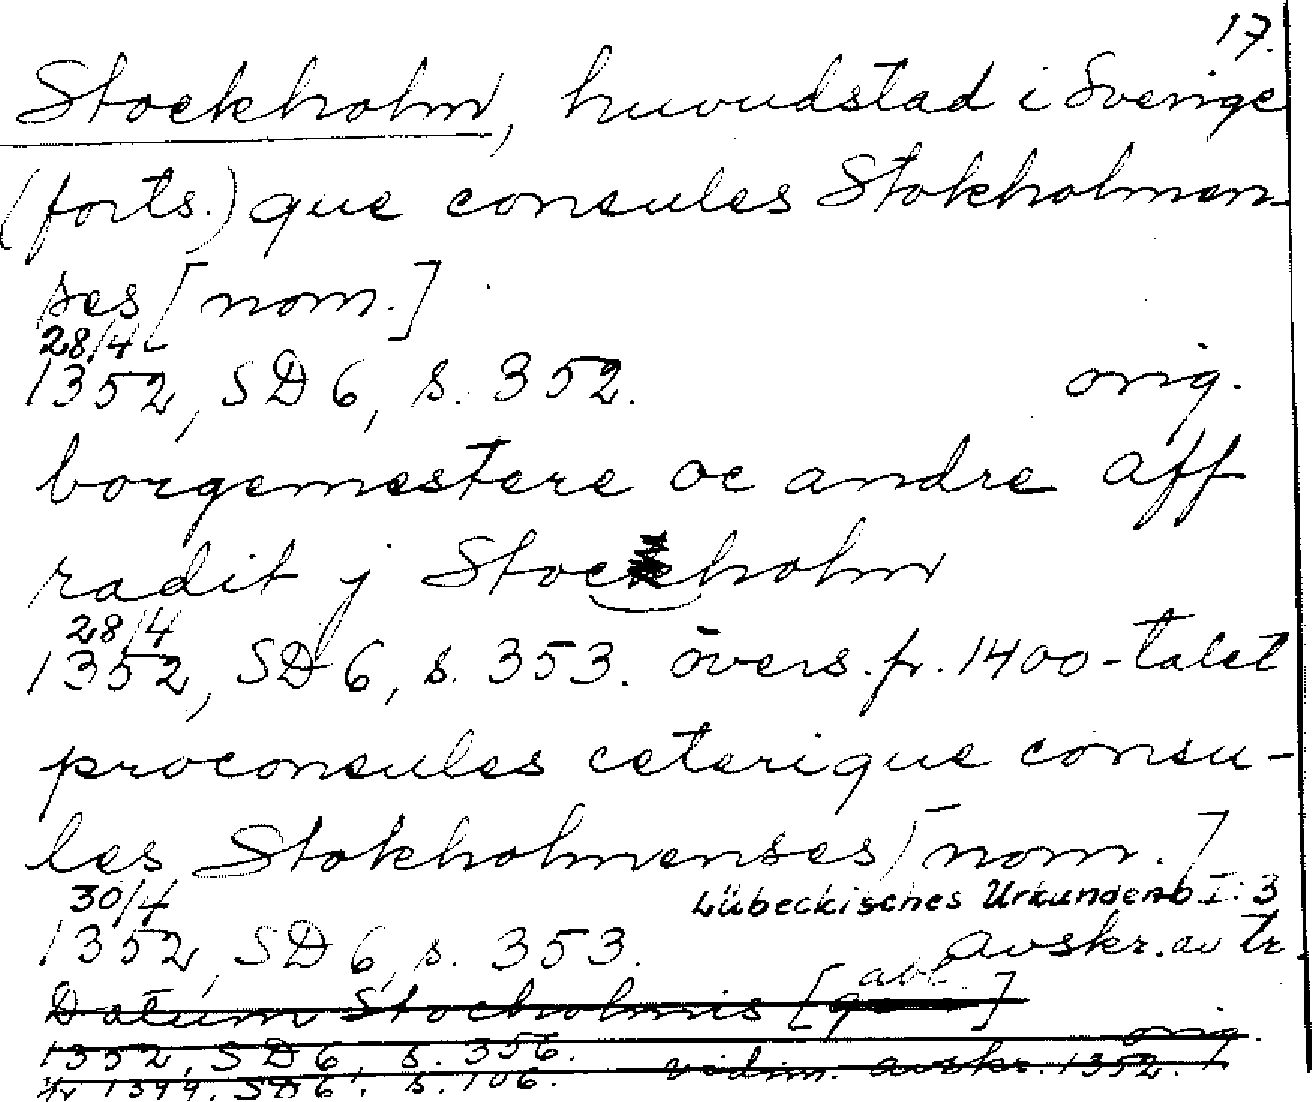 17.
Stockholm, huvudstad i Sverige
(forts.) que consules Stokholmen-
ses [nom.]
28/4
1352, SD 6, s. 352. orig.
borgemestere oc andre aff
radit j Stocholm
28/4
1352, SD 6, s. 353. övers. fr. 1400-talet
proconsules ceterique consu-
les Stokholmenses [nom.]
30/4 Lübeckisches Urkundenb I:3
1352, SD 6, s. 353. avskr. av tr.
abl.
Datum Stocholmis [ ]
1352, SD 6, s. 356. orig.
fr 1344, SD 6, s. 106. vidim. avskr. 1352.